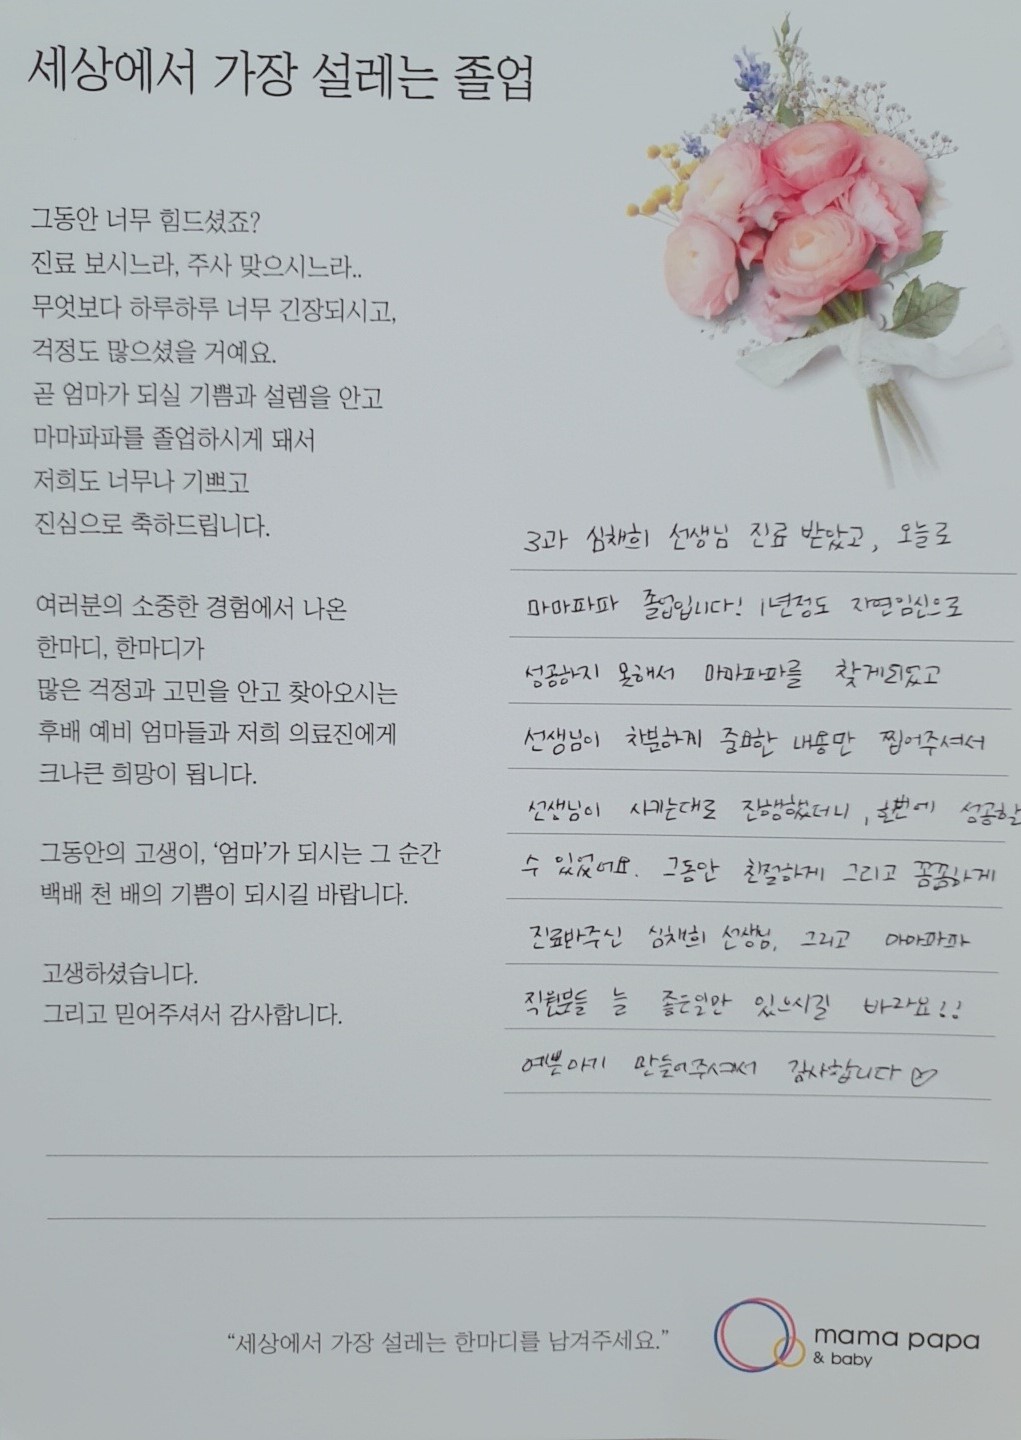 세상에서 가장 설레는 졸업
그동안 너무 힘드셨죠?
진료 보시느라, 주사 맞으시느라..
무엇보다 하루하루 너무 긴장되시고,
걱정도 많으셨을 거예요.
곧 엄마가 되실 기쁨과 설렘을 안고
마마파파를 졸업하시게 돼서
저희도 너무나 기쁘고
진심으로 축하드립니다.
여러분의 소중한 경험에서 나온
한마디, 한마디가
많은 걱정과 고민을 안고 찾아오시는
후배 예비 엄마들과 저희 의료진에게
크나큰 희망이 됩니다.
그동안의 고생이, ‘엄마’가 되시는 그 순간
백배 천 배의 기쁨이 되시길 바랍니다.
고생하셨습니다.
그리고 믿어주셔서 감사합니다.
3과 심채희 선생님 진료 받았고, 오늘로
마마파파 졸업입니다! 1년정도 자연임신으로
성공하지 못해서 마마파파를 찾게되었고
선생님이 차분하게 중요한 내용만 찝어주셔서
선생님이 시키는대로 진행했더니, 한번에 성공할
수 있었어요. 그동안 친절하게 그리고 꼼꼼하게
진료봐주신 심채희 선생님, 그리고 마마파파
직원분들 늘 좋은일만 있으시길 바라요!!
예쁜아기 만들어주셔서 감사합니다♡
“세상에서 가장 설레는 한마디를 남겨주세요.”
mama papa
& baby